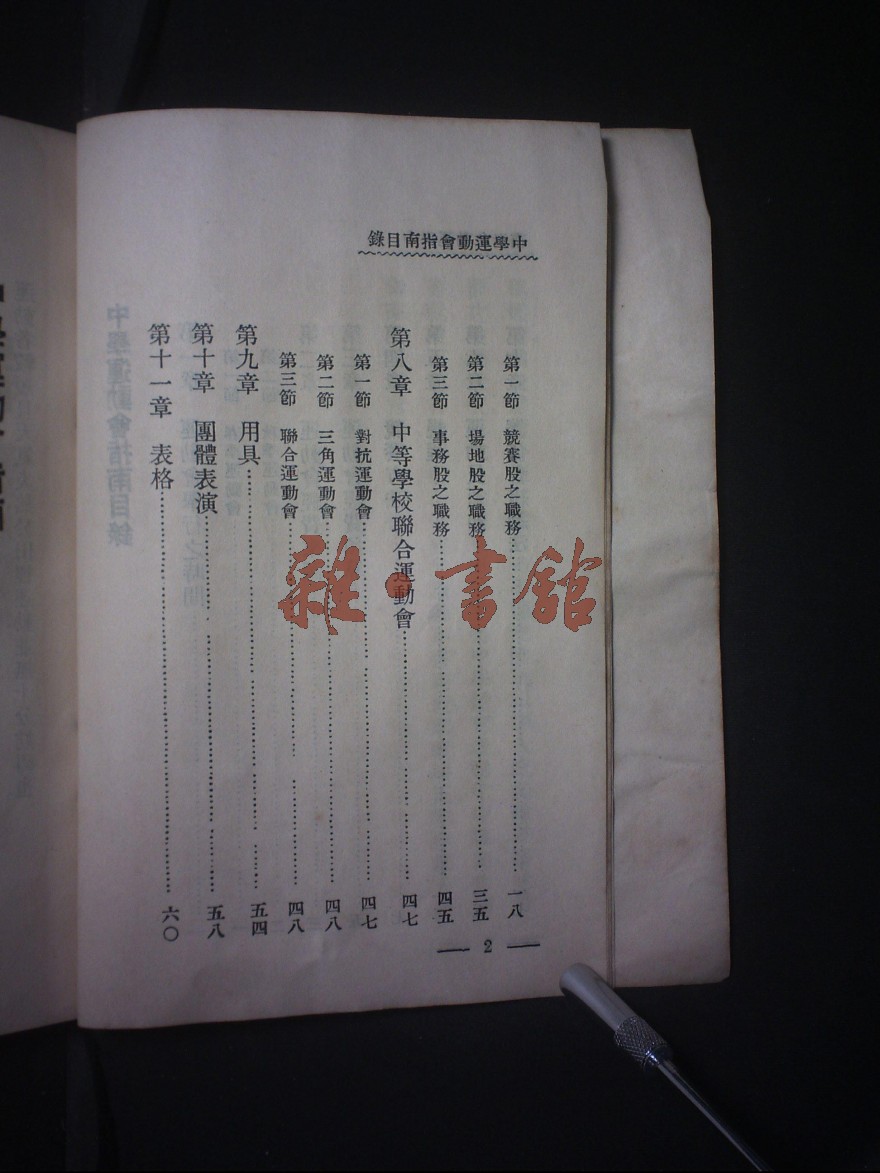 中學運動會指南目錄
第一節 競賽股之職務 一八
第二節 場地股之職務 三五
第三節 事務股之職務 四五
第八章 中等學校聯合運動會 四七
第一節 對抗運動會 四七
第二節 三角運動會 四八
第三節 聯合運動會 四八
第九章 用具 五四
第十章 團體表演 五八
第十一章 表格 六〇
2
雜·書館